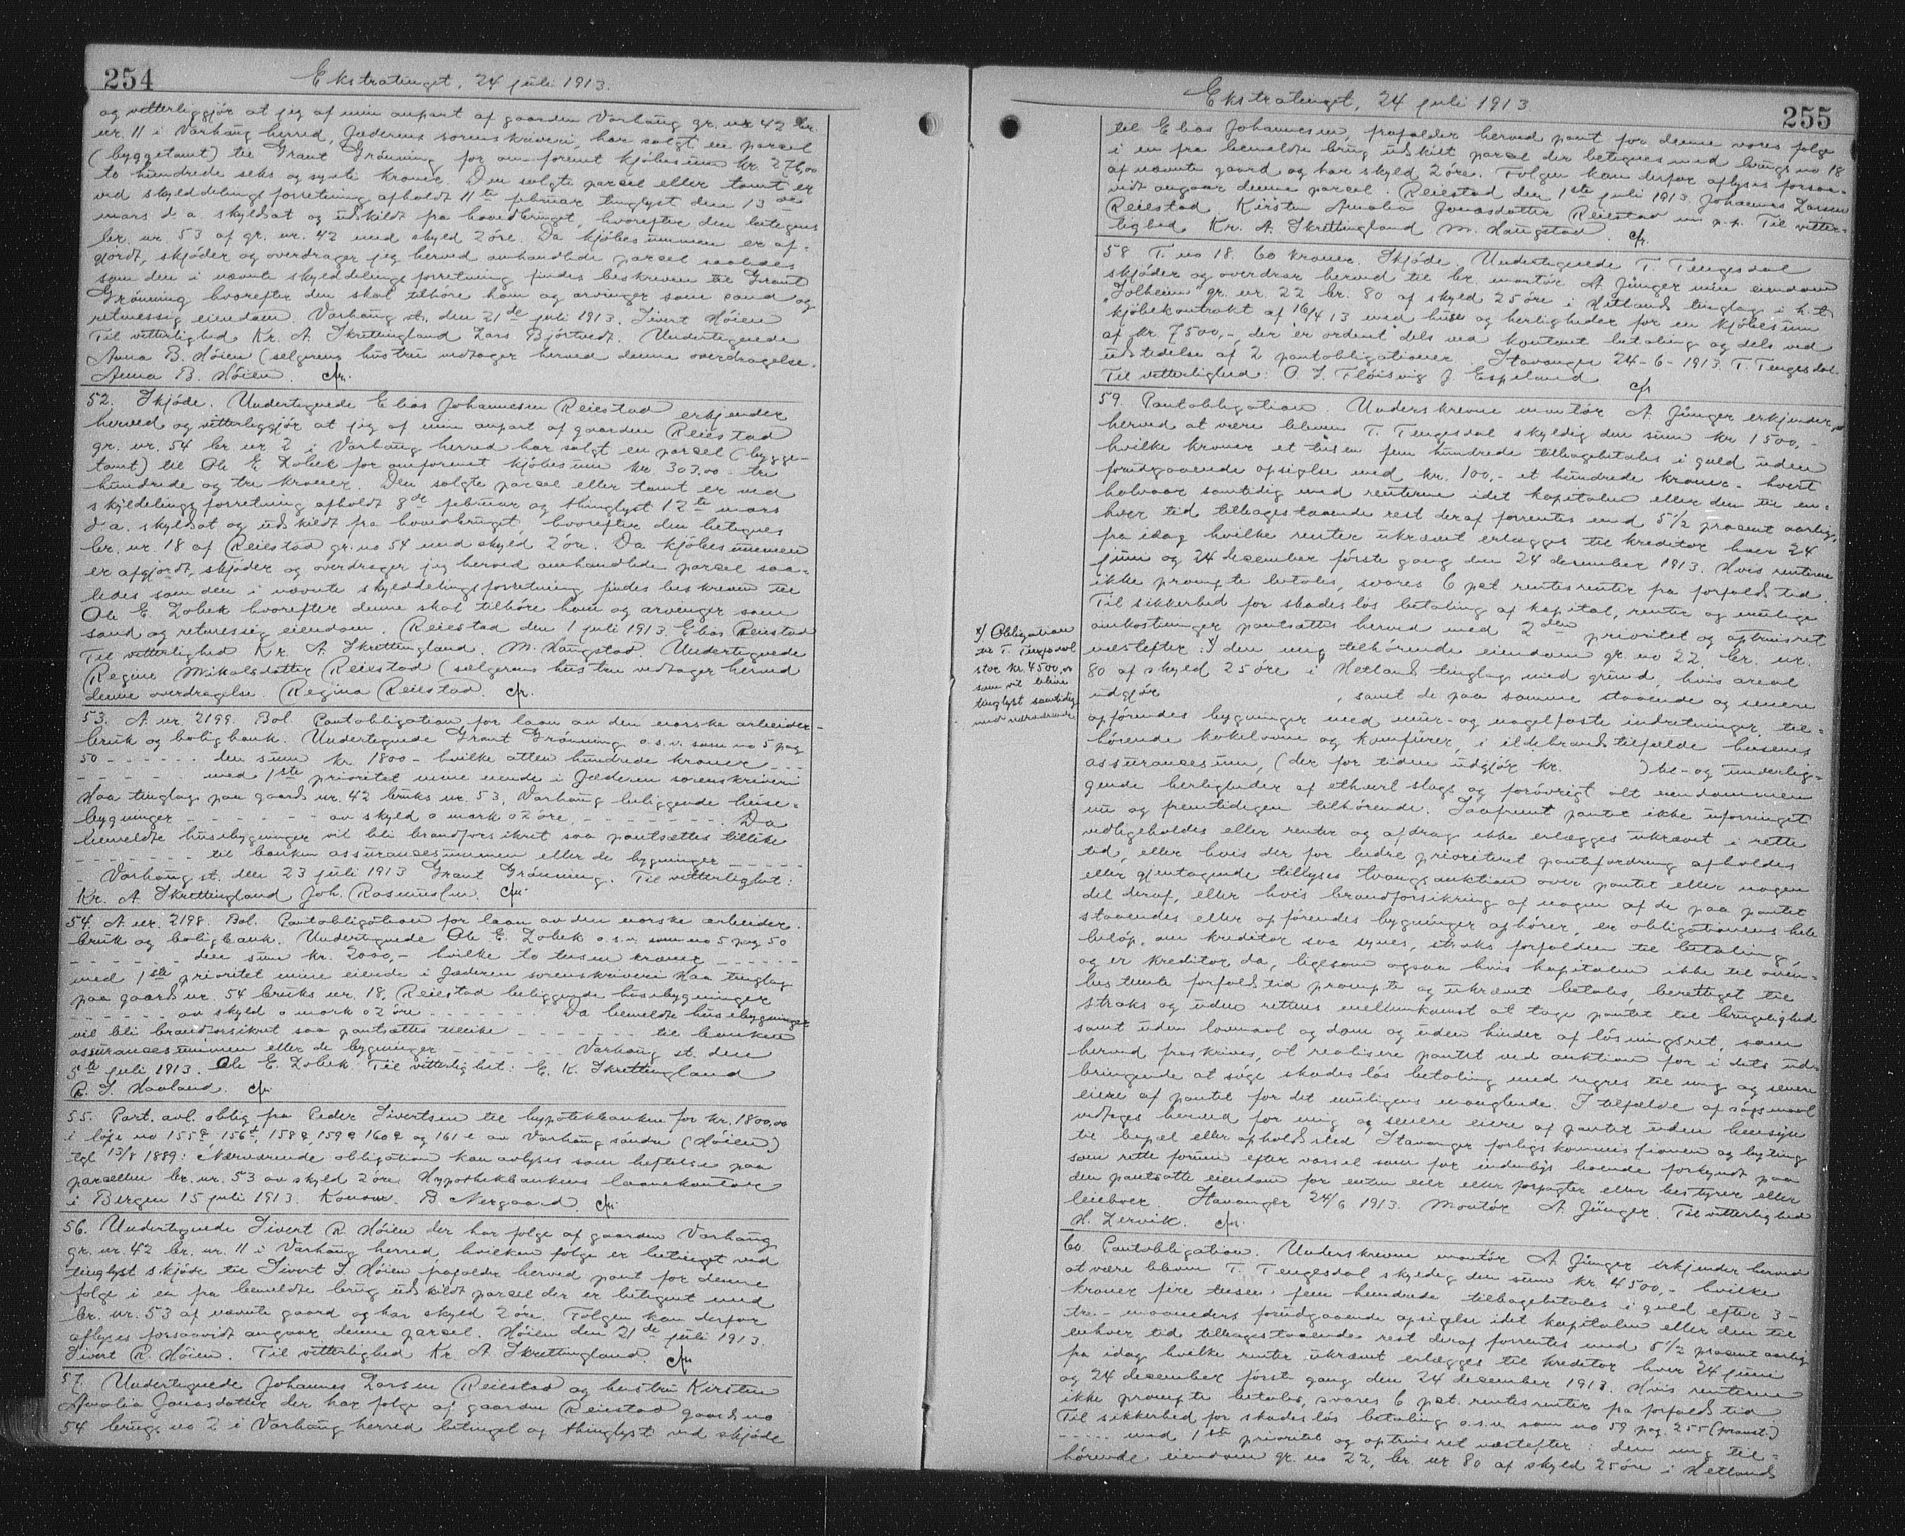 254 Ekstratinget, 24 juli 1913.
og vitterliggjør at jeg af min anpart af gaarden Varhaug gr. nr 42 br.
nr. 11 i Varhaug herred, Jæderens sorenskriveri, har solgt en parsel
(byggetomt) til Grant Grønning for omforent kjøbesum kr. 276,00
to hundrede seks og sytti kroner. Den solgte parsel eller tomt er
ved skylddelingsforretning afholdt 11te februar tinglyst den 13de
mars d. a. skyldsat og udskildt fra hovedbruget, hvorefter den betegnes
br. nr. 53 af gr. nr. 42 med skyld 2 øre. Da kjøbesummen er af-
gjordt, skjøder og overdrager jeg herved omhandlede parsel saaledes
som den i nævnte skylddelingsforretning findes beskreven til Grant
Grønning hvorefter den skal tilhøre ham og arvinger som sand og
retmessig eiendom. Varhaug st. den 21de juli 1913. Sivert Høien
Til vitterlighed Kr. A Skrettingland Lars Bjørtvedt. Undertegnede
Anna B. Høien (selgerens hustru vedtager herved denne overdragelse.
Anna B. Høien. cfr.
52. Skjøde. Undertegnede Elias Johannesen Reiestad erkjender
herved og vitterliggjør at jeg af min anpart af gaarden Reiestad
gr. nr. 54 br nr 2 i Varhaug herred har solgt en parsel (bygge-
tomt) til Ole E Lobek for omforenet kjøbesum kr. 303.00 tre
hundrede og tre kroner. Den solgte parsel eller tomt er ved
skyldelingsforretning afholdt 8de februar og thinglyst 12te mars
d a. skyldsat og udskildt fra hovedbruget hvorefter den betegnes
br. nr. 18 af Reiestad gr. no 54 med skyld 2 øre. Da kjøbesummen
er afgjordt, skjøder og overdrager jeg herved omhandlede parsel saa-
ledes som den i nævnte skylddelingsforretning findes beskreven til
Ole E Lobek hvorefter denne skal tilhøre ham og arvenger som
sand og retmessig eiendom. Reiestad den 1 juli 1913. Elias Reiestad
Til vitterlighed Kr. A. Skrettingland. M. Haugstad Undertegnede
Regine Mikalsdatter Reiestad (selgerens hustru vedtager herved
denne overdragelse. Regina Reiestad. cfr.
53. A nr. 2199. Bol. Pantobligation for laan av den norske arbeider-
bruk og boligbank. Undertegnede Grant Grønning o. s. v. som no 5 pag
50 - - - - - - den sum kr. 1800 - hvilke atten hundrede kroner - - -
- - - - - - med 1ste prioritet mine eiende i Jæderen sorenskriveri
Haa tinglag paa gaards nr. 42 bruks nr. 53, Varhaug beliggende huse-
bygninger - - - - - - av skyld 0 mark 02 øre - - - - - - - Da
bemeldte husebygninger vil bli brandforsikret saa pantsættes tillike
- - - - - - - til banken assurancesummen eller de bygninger - - - - -
- Varhaug st. den 23 juli 1913 Grant Grønning. Til vitterlighet:
Kr. A Skrettingland Joh. Rasmussen. cfr.
54. A nr. 2198. Bol. Pantobligation for laan av den norske arbeider-
bruk og boligbank. Undertegnede Ole E. Lobek o. s. v. som no 5 pag 50
- - - - - - - den sum kr. 2000,- hvilke to tusen kroner - - - - - -
med 1ste prioritet mine eiende i Jæderen sorenskriveri Haa tinglag
paa gaards nr. 54 bruks nr. 18, Reiestad beliggende husebygninger
- - - - - - - av skyld 0 mark 02 øre - - - - - - - Da bemeldte husebygninger
vil bli brandforsikret saa pantsættes tillike - - - - - - - til banken
assurancesummen eller de bygninger - - - - - - - Varhaug st. den
5te juli 1913. Ole E. Lobek. Til vitterlighet: E. K. Skrettingland
R. S. Haaland. cfr.
55. Part. avl. oblig fra Peder Sivertsen til hypotekbanken for kr. 1800,00
i løpe no 155 156 158 159 160 og 161 av Varhaug søndre (Høien)
tgl 13/8 1889: Nærværende obligation kan avlyses som heftelse paa
parsellen br. nr. 53 av skyld 2 øre. Hypothekbankens laanekontor
i Bergen 15 juli 1913. Konow. B Nergaard. cfr.
56. Undertegnede Sivert R. Høien der har folge af gaarden Varhaug
gr. nr. 42 br. nr. 11 i Varhaug herred, hvilken folge er betinget ved
tinglyst skjøde til Sivert S. Høien frafalder herved pant for denne
folge i en fra bemeldte brug udskildt parsel der er betegnet med
br. nr. 53 af nævnte gaard og har skyld 2 øre. Folgen kan derfor
aflyses forsaavidt angaar denne parsel. Høien den 21de juli 1913.
Sivert R. Høien. Til vitterlighed Kr. A Skrettingland. cfr.
57. Undertegnede Johannes Larsen Reiestad og hustru Kirsten
Amalia Jonasdatter der har folge af gaarden Reiestad gaards no
54 brugs no 2 i Varhaug herred betinget og thinglyst ved skjøde
Ekstratinget, 24 juli 1913 255
til Elias Johannesen, frafalder herved pant for denne vores folge
i en fra bemeldte brug udskilt parsel der betegnes med brugs no 18
af nævnte gaard og har skyld 2 øre. Folgen kan derfor aflyses forsaa-
vidt angaar denne parsel. Reiestad den 1ste juli 1913. Johannes Larsen
Reiestad. Kirsten Amalia Jonasdatter Reiestad m. p. p. Til vitter-
lighed Kr. A. Skrettingland M. Haugstad. cfr.
58. T. no 18. 60 kroner. Skjøde. Undertegnede T. Tengesdal
skjøder og overdrar herved til hr. montør A Jünger min eiendom
"Solheim" gr. nr. 22 br. 80 af skyld 25 øre i Hetland tinglag i h. t.
kjøbekontrakt af 16/4 13 med huse og herligheder for en kjøbesum
af kr 7500,-, der er ordent dels ved kontant betaling og dels ved
udstedelse af 2 pantobligationer. Stavanger 24-6-1913. T. Tengesdal.
Til vitterlighed: O. S. Fløisvig J Espeland cfr
59. Pantobligation. Underskrevne montør A. Jünger erkjender
herved at være bleven T. Tengesdal skyldig den sum kr 1500,-
hvilke kroner et tusen fem hundrede tilbagebetales i guld uden
forudgaaende opsigelse med kr. 100,- et hundrede kroner - hvert
halvaar samtidig med renterne idet kapitalen eller den til en-
hver tid tilbagestaaende rest deraf forrentes med 5 1/2 prosent aarlig
fra idag hvilke renter ukrævet erlægges til kreditor hver 24
juni og 24 desember første gang den 24 desember 1913. Hvis renterne
ikke prompte betales, svares 6 pct rentesrenter fra forfaldstid.
Til sikkerhed for skadesløs betaling af kapital, renter og mulige
omkostninger pantsættes herved med 2den prioritet og optrinsret
næstefter: x) den mig tilhørende eiendom gr. no 22, br. nr.
80 af skyld 25 øre i Hetland tinglag med grund, hvis areal
udgjør , samt de paa samme staaende og senere
opførendes bygninger med mur- og nagelfaste indretninger, til-
hørende kokelovne og komfürer, i ildebrandstilfælde husenes
assurancesum, (der for tiden udgjør kr. ) til- og underlig-
gende herligheder af ethvert slags og forøvrigt alt eiendommen
nu og fremtidigen tilhørende. Saafremt pantet ikke uforringet
vedligeholdes eller renter og afdrag ikke erlægges ukrævet i rette
tid, eller hvis der for bedre prioriteret pantefordring afholdes
eller gjentagende tillyses tvangsauktion over pantet eller nogen
del deraf, eller hvis brandforsikring af nogen af de paa pantet
staaendes eller opførendes bygninger ophører, er obligationens hele
beløp, om kreditor saa synes, straks forfalden til betaling,
og er kreditor da, ligesom ogsaa hvis kapitalen ikke til oven-
bestemte forfaldstid prompte og ukrævet betales, berettiget til
straks og uden rettens mellemkomst at tage pantet til brugelighed
samt uden lovmaal og dom og uden hinder af løsningsret, som
herved fraskrives, at realisere pantet ved auktion for i dets ud-
bringende at søge skadesløs betaling med regres til mig og senere
eiere af pantet for det muligens manglende. I tilfælde af søgsmaal
vedtages herved for mig og senere eiere af pantet uden hensyn
til bopel eller opholdssted Stavanger forligskommissionen og byting
som rette forum efter varsel som for indenbys boende forkyndt paa
den pantsatte eiendom for enten eier eller forpagter eller bestyrer eller
leieboer. Stavanger 24/6 1913. Montør A. Jünger. Til vitterlighed
H. Lervik. cfr.
x) Obligation
til T. Tengesdal
stor kr. 4500,00
som vil blive
tinglyst samtidig
med nærværende
60 Pantobligation. Underskrevne montør A Jünger erkjender herved
at være bleven T. Tengesdal skyldig den sum kr. 4500,- hvilke
kroner fire tusen fem hundrede tilbagebetales i guld efter 3-
tre - maaneders forudgaaende opsigelse idet kapitalen eller den til
enhver tid tilbagestaaende rest deraf forrentes med 5 1/2 prosent aarlig
fra idag hvilke renter ukrævet erlægges til kreditor hver 24 juni
og 24 desember først gang den 24 desember 1913. Hvis renterne
ikke prompte betales, svares 6 pct. rentesrenter fra forfaldstid
Til sikkerhed for skadesløs betaling o. s. v. som no 59 pag. 255 (foranst.)
- - - - - med 1ste prioritet og optrinsret næstefter: den mig til-
hørende eiendom gr. no 22, br. nr 80 af skyld 25 øre i Hetlands